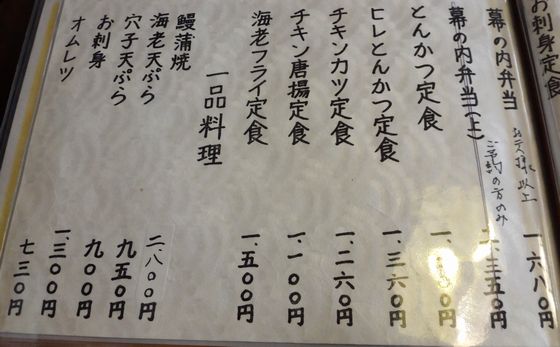 お刺身定食
幕の内弁当 一、六八〇円
幕の内弁当(上) 二、三五〇円
お二人様以上
ご予約の方のみ
とんかつ定食
ヒレとんかつ定食 一、三六〇円
チキンカツ定食 一、二六〇円
チキン唐揚定食 一、一〇〇円
海老フライ定食 一、五〇〇円
一品料理
鰻蒲焼 二、八〇〇円
海老天ぷら 九五〇円
穴子天ぷら 九〇〇円
お刺身 一、三〇〇円
オムレツ 七三〇円